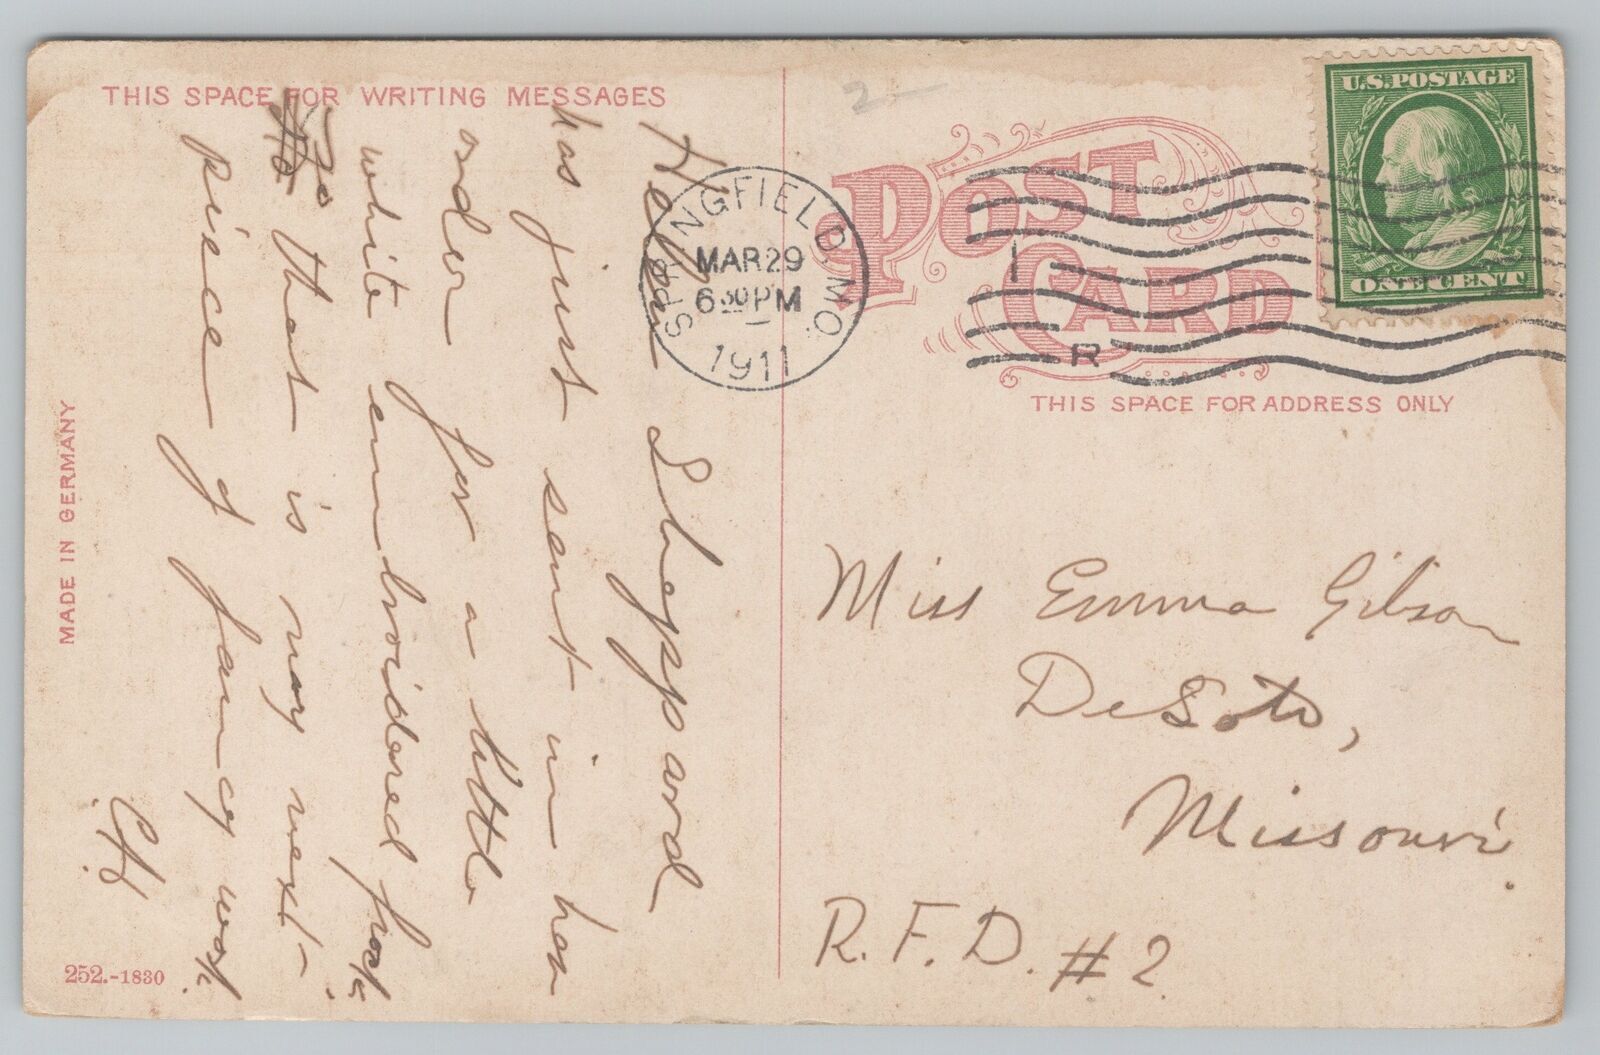 THIS SPACE FOR WRITING MESSAGES
Helen Sheppard
has just sent in her
order for a little
white embroidered frock
So that is my next
piece of fancy work.
MADE IN GERMANY
252.-1830
2
POST CARD
THIS SPACE FOR ADDRESS ONLY
SPRINGFIELD, MO.
MAR 29
6 30 PM
1911
1
R
U.S. POSTAGE
ONE CENT
Miss Emma Gibson
DeSoto,
Missouri.
R. F. D. #2